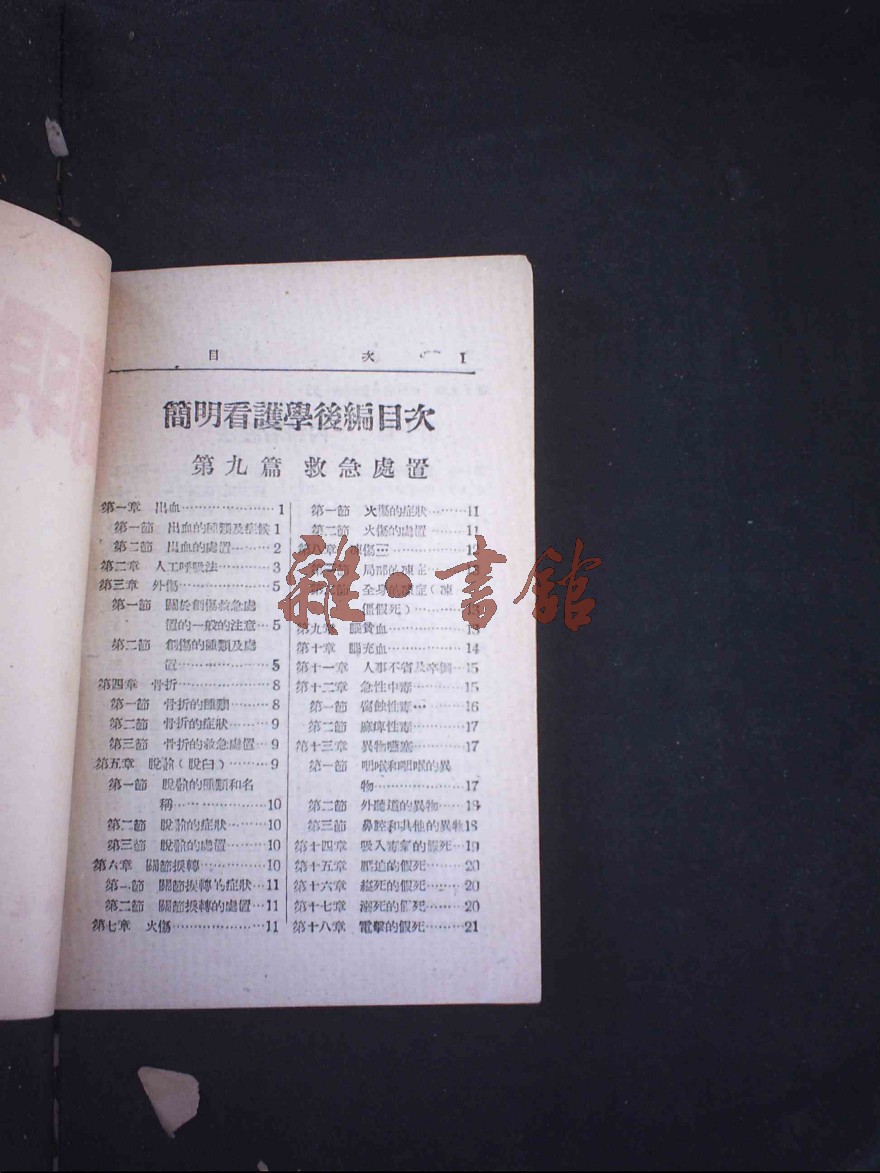 目 次 1
簡明看護學後編目次
第九篇 救急處置
第一章 出血…………………1
第一節 出血的種類及症候 1
第二節 出血的處置………2
第二章 人工呼吸法…………3
第三章 外傷…………………5
第一節 關於創傷救急處
置的一般的注意…5
第二節 創傷的種類及處
置…………………5
第四章 骨折…………………8
第一節 骨折的種類………8
第二節 骨折的症狀………9
第三節 骨折的救急處置…9
第五章 脫骱(脫臼)………9
第一節 脫骱的種類和名
稱…………………10
第二節 脫骱的症狀………10
第三節 脫骱的處置………10
第六章 關節捩轉……………10
第一節 關節捩轉的症狀…11
第二節 關節捩轉的處置…11
第七章 火傷…………………11
第一節 火傷的症狀………11
第二節 火傷的處置………11
第八章 凍傷…………………12
節 局部的凍症
節 全身的凍症(凍
僵假死)
第九章 腦貧血………………13
第十章 腦充血………………14
第十一章 人事不省及卒倒…15
第十二章 急性中毒…………15
第一節 腐蝕性毒…………16
第二節 麻痺性毒…………17
第十三章 異物嚥塞…………17
第一節 咽喉和咽喉的異
物…………………17
第二節 外聽道的異物……18
第三節 鼻腔和其他的異物18
第十四章 吸入毒氣的假死…19
第十五章 壓迫的假死………20
第十六章 縊死的假死………20
第十七章 溺死的假死………20
第十八章 電擊的假死………21
雜·書館